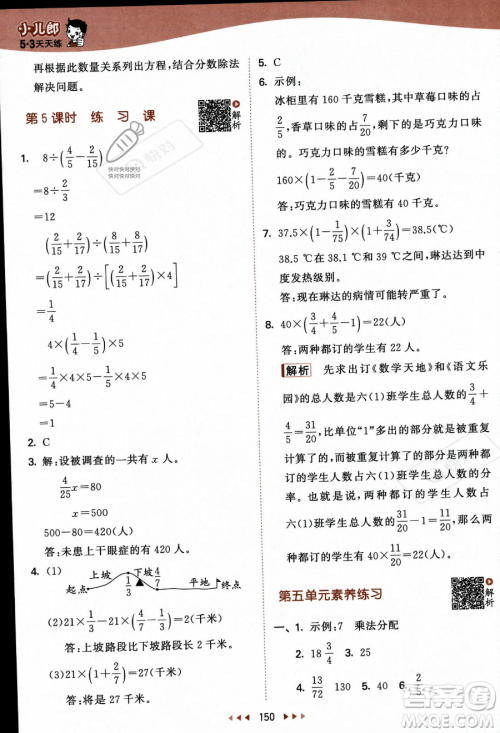 小儿郎
5·3天天练
再根据此数量关系列出方程，结合分数除法
解决问题。
第5课时 练 习 课
解析
1. 8÷(4/5-2/15)
=8÷2/3
=12
(2/15+2/17)÷(8/15+8/17)
=(2/15+2/17)÷[(2/15+2/17)×4]
=1/4
4×(1/4-1/5)×5
=1/4×4×5-1/5×4×5
=5-4
=1
2. C
3. 解:设被调查的一共有 x 人。
4/25x=80
x=500
500-80=420(人)
答:未患上干眼症的有 420 人。
4. (1)
上坡 下坡4/7
起点 1/3 平地 终点
(2)21×1/3-21×(1-1/3-4/7)=5(千米)
答:上坡路段比下坡路段多 5 千米。
(3)21×(1-1/3-4/7)=2(千米)
答:将是 2 千米。
5. C
6. 示例:
冰柜里有 160 千克雪糕,其中草莓口味的
占2/5,香草口味的占7/20,剩下的是巧克力口
味的。巧克力口味的雪糕有多少千克?
160×(1-2/5-7/20)=40(千克)
答:巧克力口味的雪糕有 40 千克。
7. 37.5×(1-1/75)×(1+1/39)=38.5(℃)
38.5 ℃在 38.1 ℃和 39 ℃之间,琳达达到中
度发热级别。
答:现在琳达的病情可能转严重了。
8. 40×(3/4+4/5-1)=22(人)
答:两种都订的学生有 22 人。
解析 先求出订《数学天地》和《语文乐
园》的总人数是六(1)班学生总人数的3/4+
4/5=31/20,比单位“1”多出的部分就是被重复
计算了的部分,也就是两种都订的部分,因
此被重复计算的部分占六(1)班学生总人数
的31/20-1=11/20,所以两种都订的学生有40×
11/20=22(人)。
第五单元素养练习
解析
一、1. 示例:7 乘法分配
2. 18 3/4 3. 25
4. 13/72 130 5. 40 6. 2/5
150
快对
快对